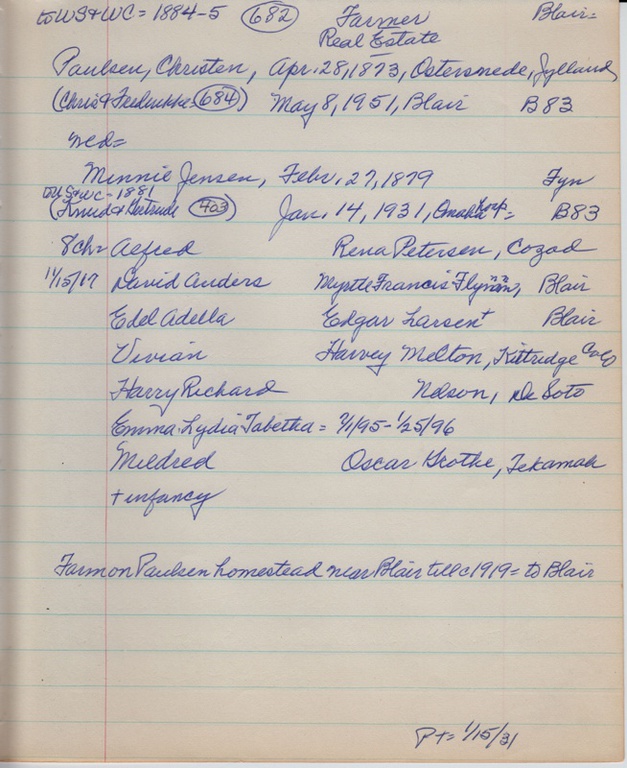 to US & WC = 1884-5 682 Farmer Blair =
Real Estate
Paulsen, Christen, Apr. 28, 1873, Ostersnede, Jylland
(Chris & Fredrikke 684) May 8, 1951, Blair B83
wed =
Minnie Jensen, Febr. 27, 1879 Fyn
to US & WC - 1881
(Knud & Gertrude 703) Jan. 14, 1931, Omaha Hosp = B83
8 ch = Alfred Rena Petersen, Cozad
11/15/17 David Anders Myrtle Francis Flynn, Blair
Edel Adella Edgar Larsen + Blair
Vivian Harvey Melton, Kittridge Colo
Harry Richard Nelson, De Soto
Emma Lydia Tabetha = 7/1/95 - 1/25/96
Mildred Oscar Grothe, Tekamah
+ infancy
Farm on Paulsen homestead near Blair till c 1919 = to Blair
P + = 1/15/31